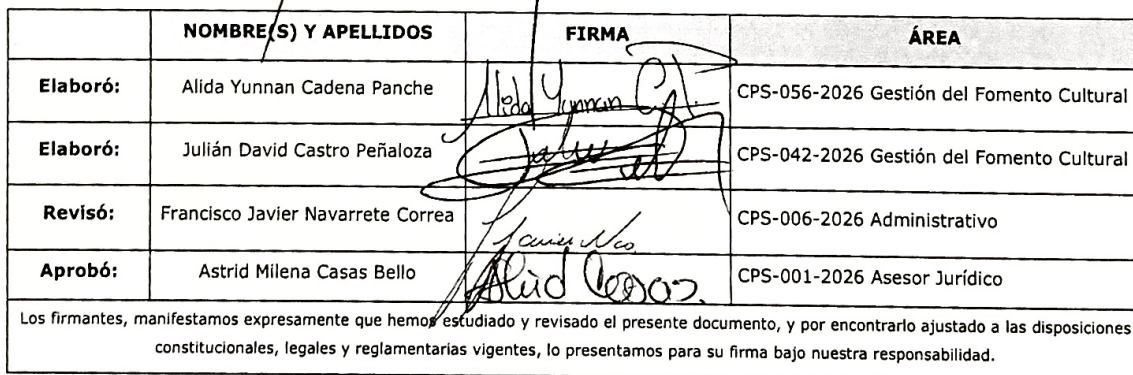 NOMBRE(S) Y APELLIDOS FIRMA ÁREA
Elaboró: Alida Yunnan Cadena Panche Alida Yunnan C. CPS-056-2026 Gestión del Fomento Cultural
Elaboró: Julián David Castro Peñaloza CPS-042-2026 Gestión del Fomento Cultural
Revisó: Francisco Javier Navarrete Correa Javier CPS-006-2026 Administrativo
Aprobó: Astrid Milena Casas Bello Casas. CPS-001-2026 Asesor Jurídico
Los firmantes, manifestamos expresamente que hemos estudiado y revisado el presente documento, y por encontrarlo ajustado a las disposiciones
constitucionales, legales y reglamentarias vigentes, lo presentamos para su firma bajo nuestra responsabilidad.